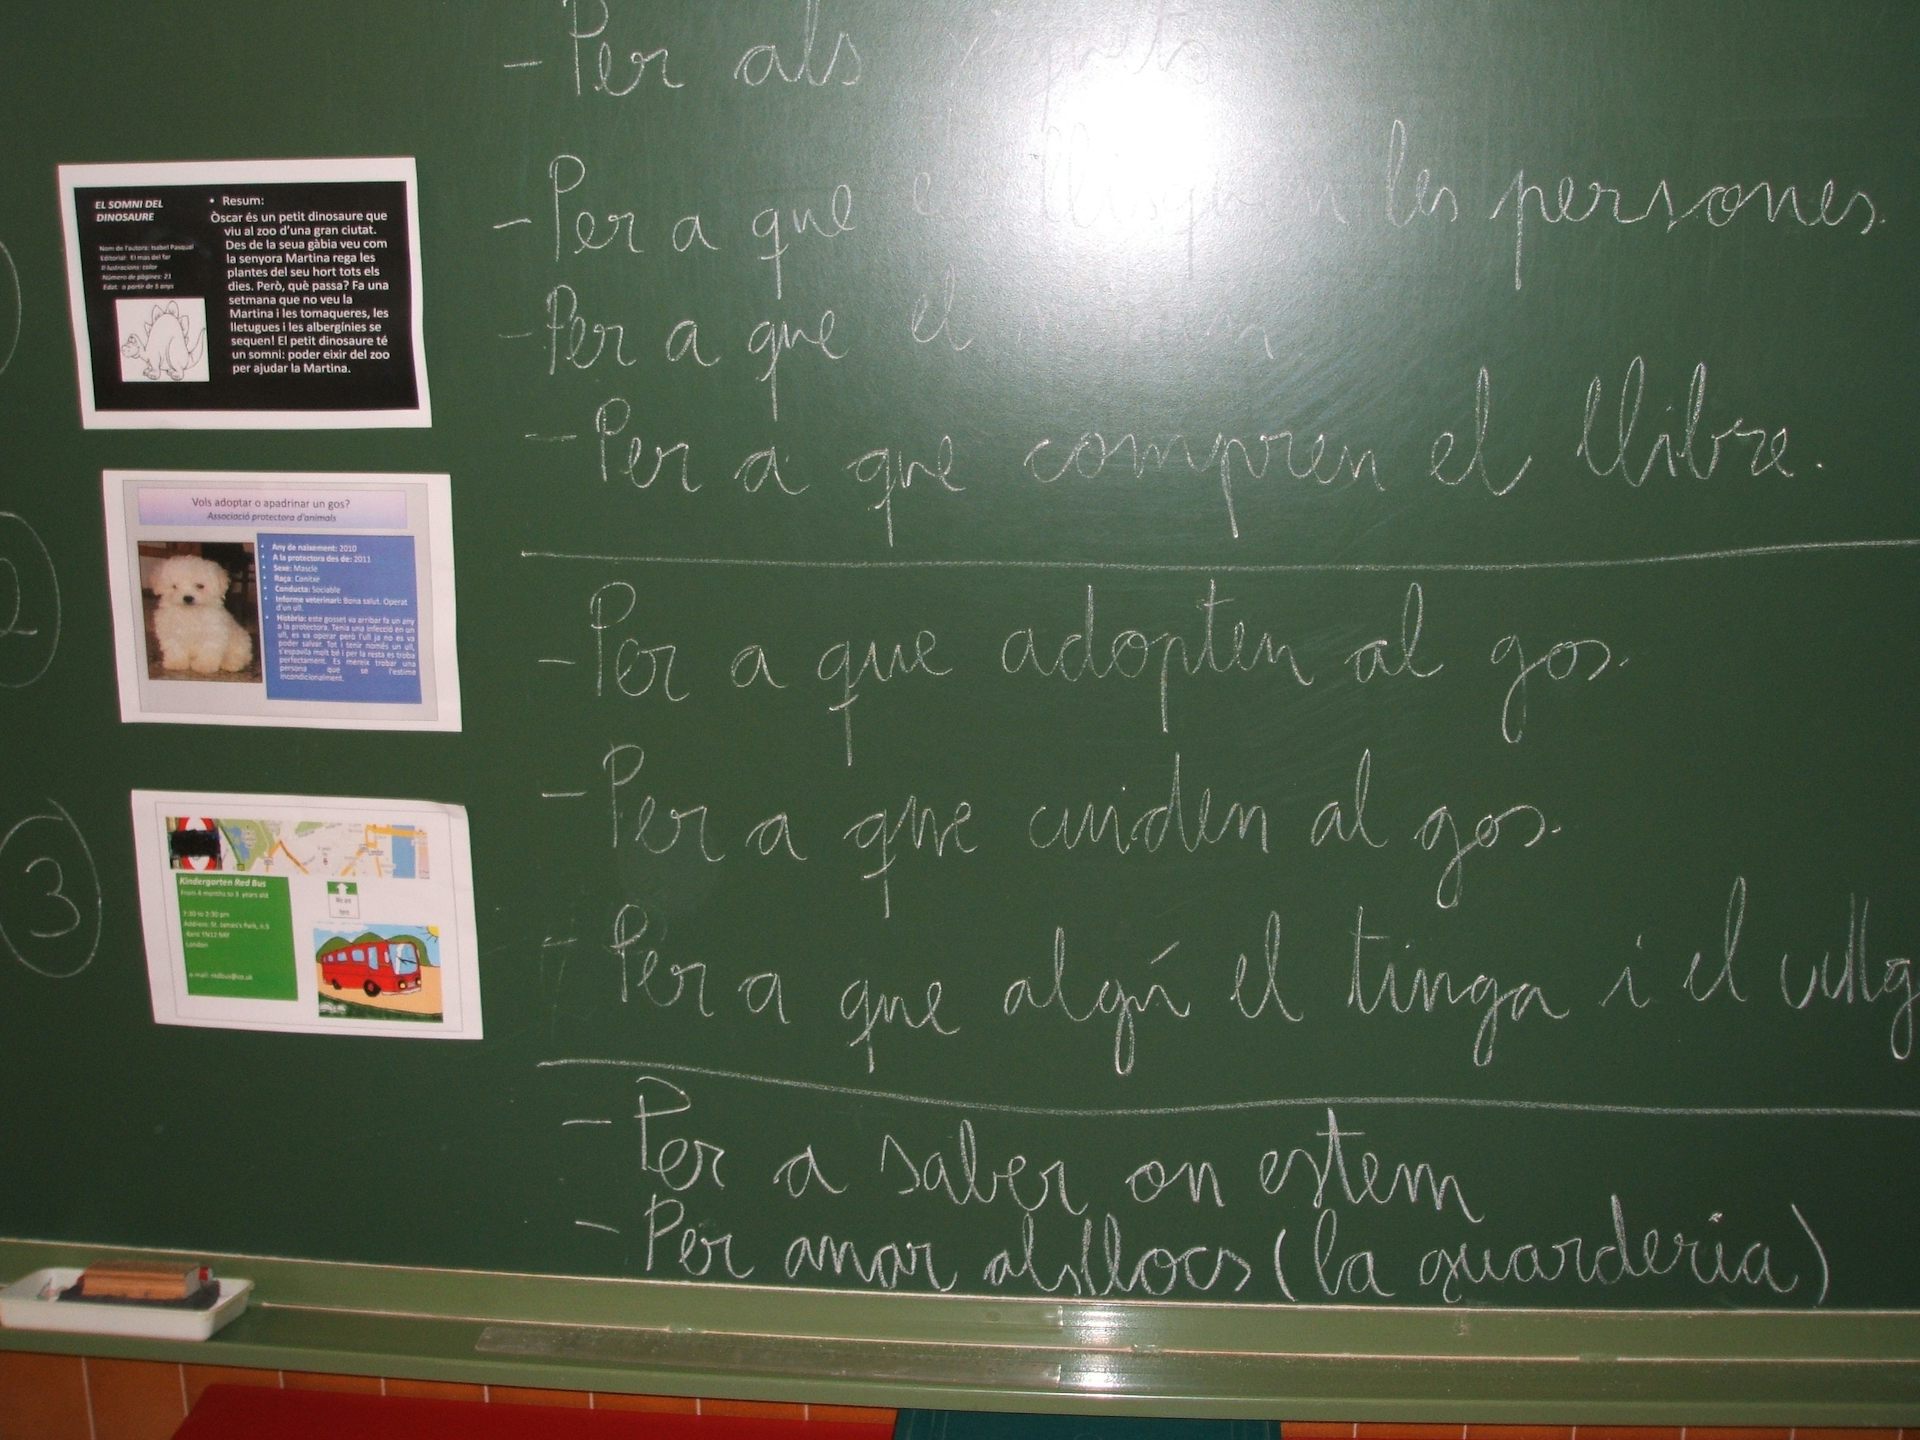 - Per als
- Per a que el llisquen les persones.
- Per a que el
- Per a que compren el llibre.
EL SOMNI DEL
DINOSAURE
Nom de l'autora: Isabel Pasqual
Editorial: El mas del far
Il·lustracions: color
Número de pàgines: 21
Edat: a partir de 5 anys
• Resum:
Òscar és un petit dinosaure que
viu al zoo d'una gran ciutat.
Des de la seua gàbia veu com
la senyora Martina rega les
plantes del seu hort tots els
dies. Però, què passa? Fa una
setmana que no veu la
Martina i les tomaqueres, les
lletugues i les albergínies se
sequen! El petit dinosaure té
un somni: poder eixir del zoo
per ajudar la Martina.
2
Vols adoptar o apadrinar un gos?
Associació protectora d'animals
• Any de naixement: 2010
• A la protectora des de: 2011
• Sexe: Mascle
• Raça: Canitxe
• Conducta: Sociable
• Informe veterinari: Bona salut. Operat
d'un ull.
• Història: este gosset va arribar fa un any
a la protectora. Tenia una infecció en un
ull, es va operar però l'ull ja no es va
poder salvar. Tot i tenir només un ull,
s'espavila molt bé i per la resta es troba
perfectament. Es mereix trobar una
persona que se l'estime
incondicionalment.
- Per a que adopten al gos.
- Per a que cuiden al gos.
- Per a que algú el tinga i el vullg
3
Kindergarten Red Bus
From 4 months to 3 years old
7:30 to 3:30 pm
Address: St. James's Park, n.5
Kent TN12 8AY
London
e-mail: redbus@co.uk
We are
here
- Per a saber on estem
- Per anar als llocs (la guarderia)